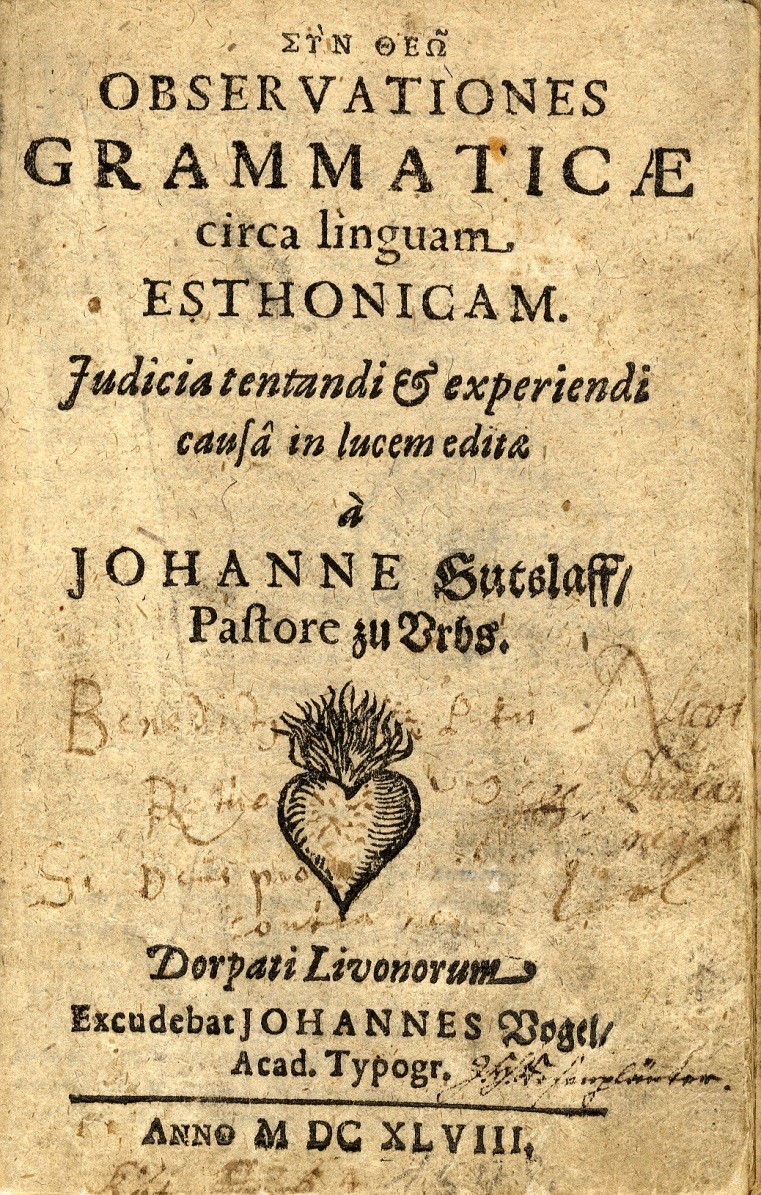 ΣῪΝ ΘΕΩ͂
OBSERVATIONES
GRAMMATICÆ
circa lìnguam
ESTHONICAM.
Judicia tentandi & experiendi
cauſâ in lucem editæ
à
JOHANNE Gutslaff/
Paſtore zu Vrbs.
Si Deus pro
contra
Dorpati Livonorum
Excudebat JOHANNES Vogel/
Acad. Typogr. Rosenplänter.
ANNO M DC XLVIII,